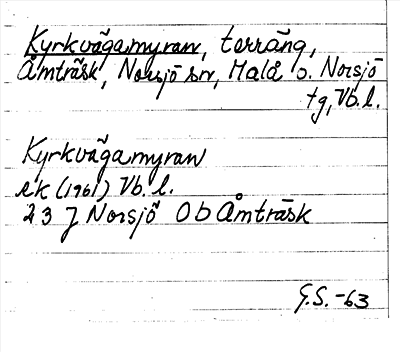 Kyrkvägamyran, terräng,
Åmträsk, Norsjö sn, Malå o. Norsjö
tg, Vb. l.
Kyrkvägamyran
ek (1961) Vb. l.
23 J Norsjö 0 b Åmträsk
G.S. -63